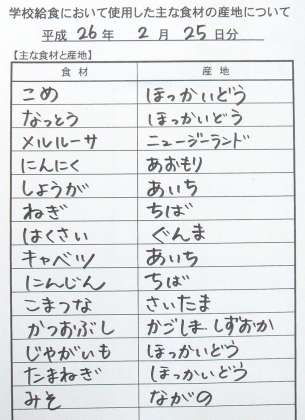 学校給食において使用した主な食材の産地について
平成 26 年 2 月 25 日分
【主な食材と産地】
食材 産地
こめ ほっかいどう
なっとう ほっかいどう
メルルーサ ニュージーランド
にんにく あおもり
しょうが あいち
ねぎ ちば
はくさい ぐんま
キャベツ あいち
にんじん ちば
こまつな さいたま
かつおぶし かごしま しずおか
じゃがいも ほっかいどう
たまねぎ ほっかいどう
みそ ながの